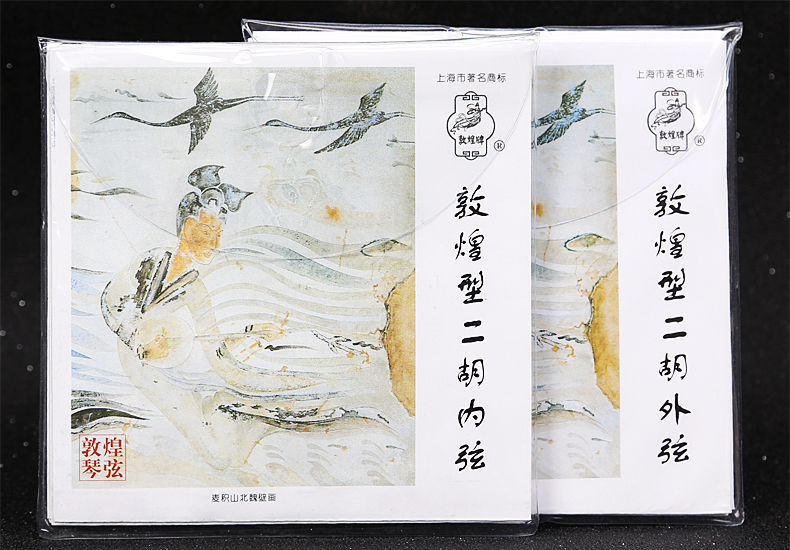 上海市著名商标
敦煌牌
®
敦煌型二胡内弦
敦煌
琴弦
麦积山北魏壁画
上海市著名商标
敦煌牌
®
敦煌型二胡外弦